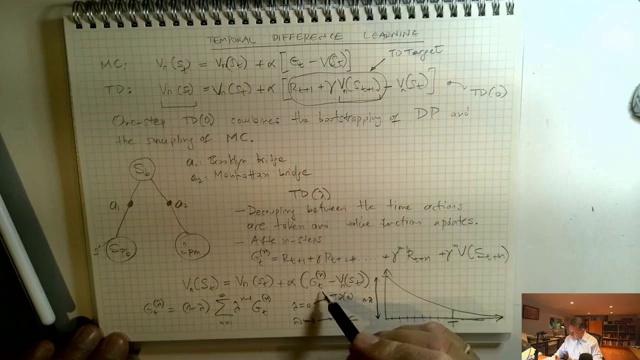 TEMPORAL DIFFERENCE LEARNING
MC: Vπ(St) = Vπ(St) + α [Gt − V(St)]
TD Target
TD: Vπ(St) = Vπ(St) + α [Rt+1 + γ Vπ(St+1) − Vπ(St)] TD(0)
One-step TD(0) combines the bootstrapping of DP and
the sampling of MC.
S0
a1: Brooklyn bridge
a2: Manhattan bridge
a1
a2
TD(λ)
- Decoupling between the time actions
are taken and value function updates.
- After n-steps
Gt(n) = Rt+1 + γRt+2 + ... + γn-1 Rt+n + γn V(St+n)
Vπ(St) = Vπ(St) + α (Gt(λ) − Vπ(St))
Gt(λ) = (1-λ) Σ n=1 ∞ λn-1 Gt(n)
T